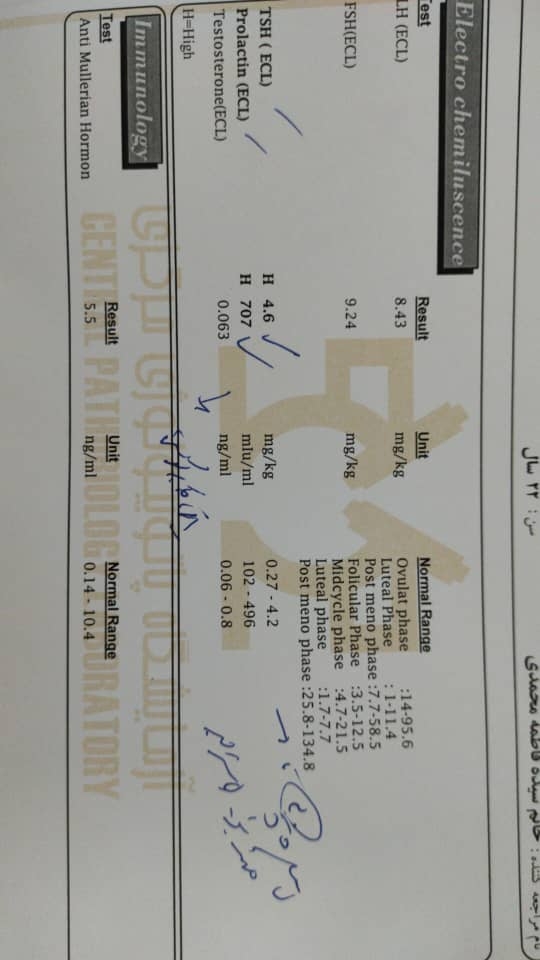 نام مراجعه کننده : خانم سیده فاطمه محمدی
سن : ۲۲ سال
Electro chemiluscence
Test Result Unit Normal Range
LH (ECL) 8.43 mg/kg Ovulat phase :14-95.6
Luteal Phase : 1-11.4
Post meno phase :7.7-58.5
FSH(ECL) 9.24 mg/kg Folicular Phase :3.5-12.5
Midcycle phase :4.7-21.5
Luteal phase :1.7-7.7
Post meno phase :25.8-134.8
TSH ( ECL) H 4.6 mg/kg 0.27 - 4.2
Prolactin (ECL) H 707 mlu/ml 102 - 496
Testosterone(ECL) 0.063 ng/ml 0.06 - 0.8
H=High
آزمایشگاه پاتوبیولوژی مرکزی
Immunology
Test Result Unit Normal Range
Anti Mullerian Hormon 5.5 ng/ml 0.14 - 10.4
CENTRAL PATHOBIOLOGY LABORATORY